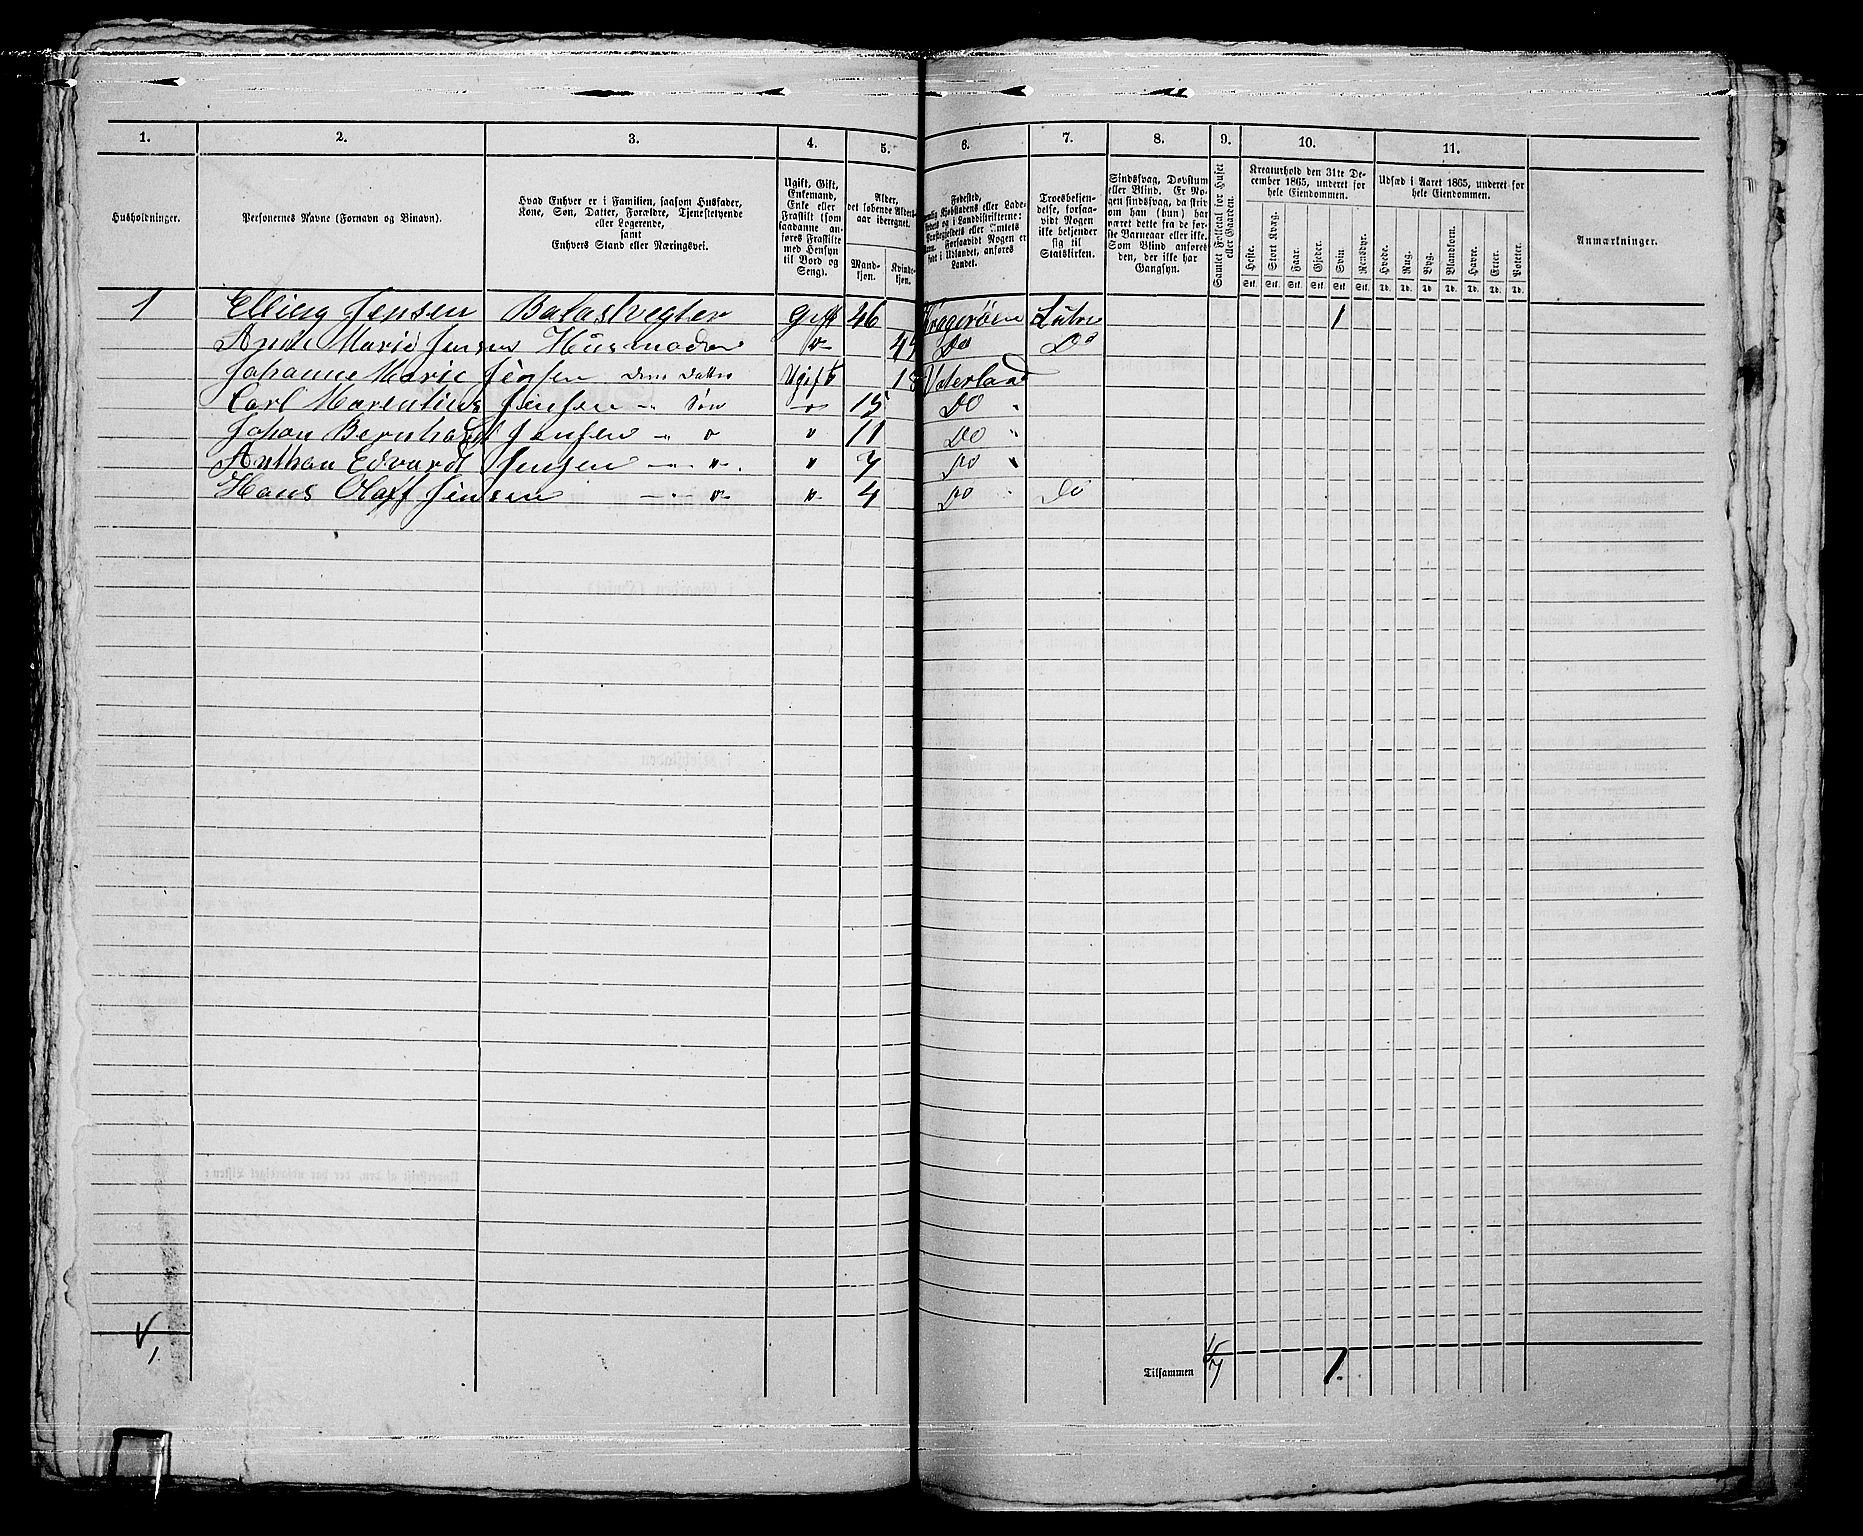 1. 2. 3. 4. 5. 6. 7. 8. 9. 10. 11.
Husholdninger.
Personernes Navne (Fornavn og Binavn).
Hvad Enhver er i Familien, saasom Husfader,
Kone, Søn, Datter, Forældre, Tjenestetyende
eller Logerende,
samt
Enhvers Stand eller Næringsvei.
Ugift, Gift,
Enkemand,
Enke eller
Fraskilt (som
saadanne an-
føres Fraskilte
med Hensyn
til Bord og
Seng).
Alder,
det løbende Alders-
aar iberegnet.
Mand-
kjøn.
Kvinde-
kjøn.
Fødested,
Troesbekjen-
delse, forsaa-
vidt Nogen
ikke bekjender
sig til
Statskirken.
Sindssvag, Døvstum
eller Blind. Er No-
gen sindssvag, da skriv
om han (hun) har
været dette fra de før-
ste Barneaar eller ikke.
Som Blind anføres
den, der ikke har
Gangsyn.
Samlet Folketal for Huset
eller Gaarden.
Kreaturhold den 31te De-
cember 1865, underet for
hele Eiendommen.
Heste. Stort Kvæg. Faar. Gjeder. Svin. Rensdyr.
Stk. Stk. Stk. Stk. Stk. Stk.
Udsæd i Aaret 1865, underet for
hele Eiendommen.
Hvede. Rug. Byg. Blandkorn. Havre. Erter. Poteter.
Td. Td. Td. Td. Td. Td. Td.
Anmærkninger.
1 Elling Jensen Balastvegter Gift 46 Kragerøen Lutre 1
Anne Marie Jensen Husmoder 45 Do Do
Johanne Marie Jensen Datter Ugift 18 Vaterland
Carl Marentius Jensen " Søn 15 Do "
Johan Bernhard Jensen " " " 11 Do "
Anthon Edvard Jensen " " " 7 Do "
Hans Olaff Jensen " " " 4 Do " Do
Tilsammen 7 1.